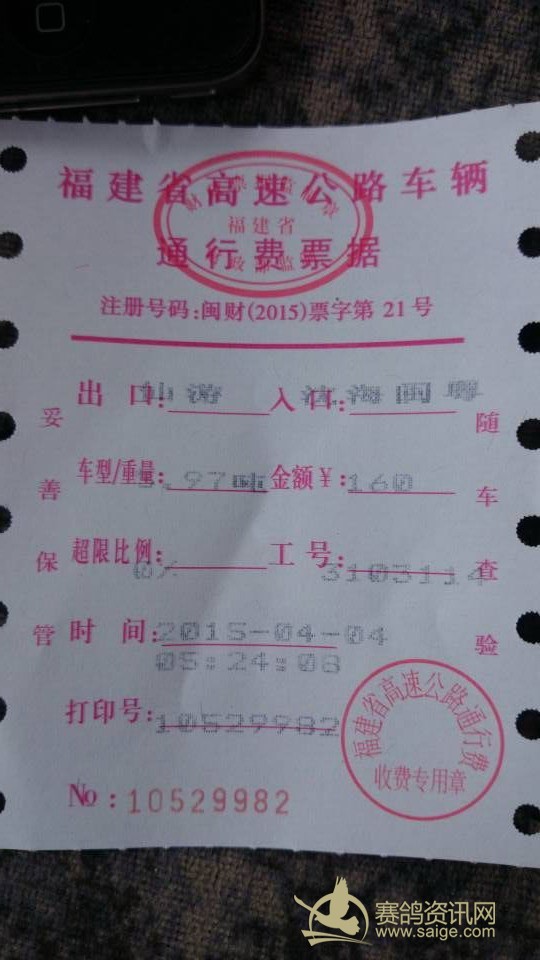 福建省高速公路车辆
福建省
通行费票据
注册号码:闽财(2015)票字第 21 号
出 口: 仙游 入口: 沈海闽粤
车型/重量: .97吨 金额¥: 160
超限比例: 0% 工号: 3103114
时 间: 2015-04-04
05:24:08
打印号: 10529982
No : 10529982
妥善保管
随车查验
福建省高速公路通行费
收费专用章
赛鸽资讯网
www.saige.com